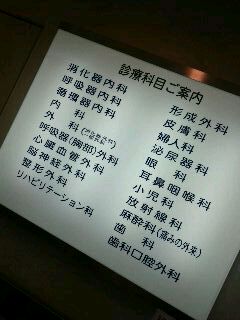 診療科目ご案内
消化器内科
呼吸器内科
循環器内科
内科
外科
呼吸器(胸部)外科
心臓血管外科
脳神経外科
整形外科
リハビリテーション科
形成外科
皮膚科
婦人科
泌尿器科
眼科
耳鼻咽喉科
小児科
放射線科
麻酔科(痛みの外来)
歯科
歯科口腔外科